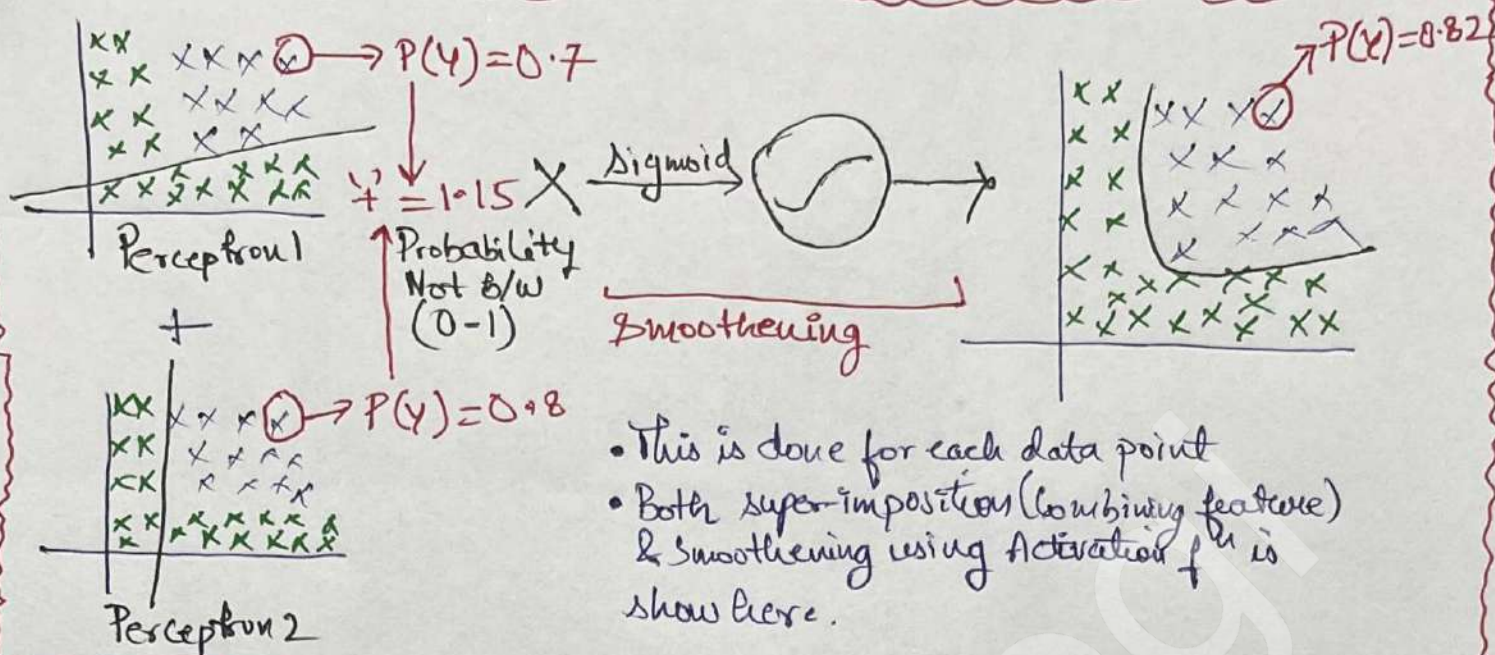 P(Y)=0.7
Perceptron 1
+
Perceptron 2
P(Y)=0.8
'+' = 1.15 X
Probability
Not b/w
(0-1)
Sigmoid
Smoothening
P(Y)=0.82
• This is done for each data point
• Both super-imposition (Combining feature)
& Smoothening using Activation fn is
show here.